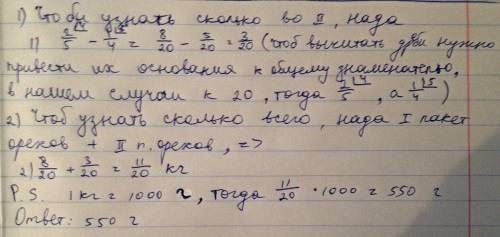 1) Чтобы узнать сколько во II, нада
1) 2/5 - 1/4 = 8/20 - 5/20 = 3/20 (чтоб вычитать дроби нужно
привести их основания к общему знаменателю,
в нашем случаи к 20, тогда 2/5 |4 , а 1/4 |5)
2) Чтоб узнать сколько всего, нада I пакет
орехов + II п. орехов, =>
2) 8/20 + 3/20 = 11/20 кг
P.S. 1 кг = 1000 г, тогда 11/20 · 1000 = 550 г
Ответ: 550 г